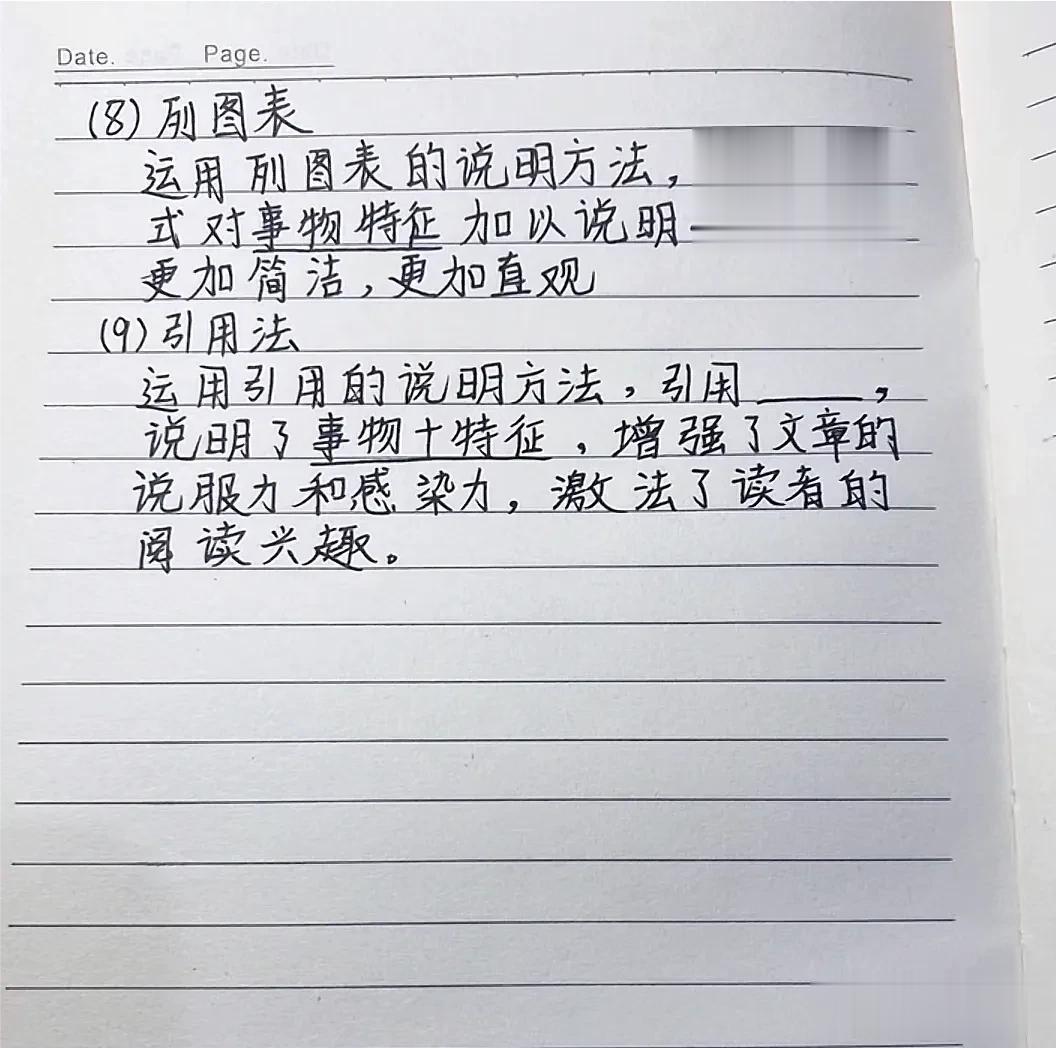 Date. Page.
(8) 列图表
运用列图表的说明方法,
式对事物特征加以说明
更加简洁,更加直观
(9) 引用法
运用引用的说明方法,引用____,
说明了事物十特征,增强了文章的
说服力和感染力,激法了读者的
阅读兴趣。